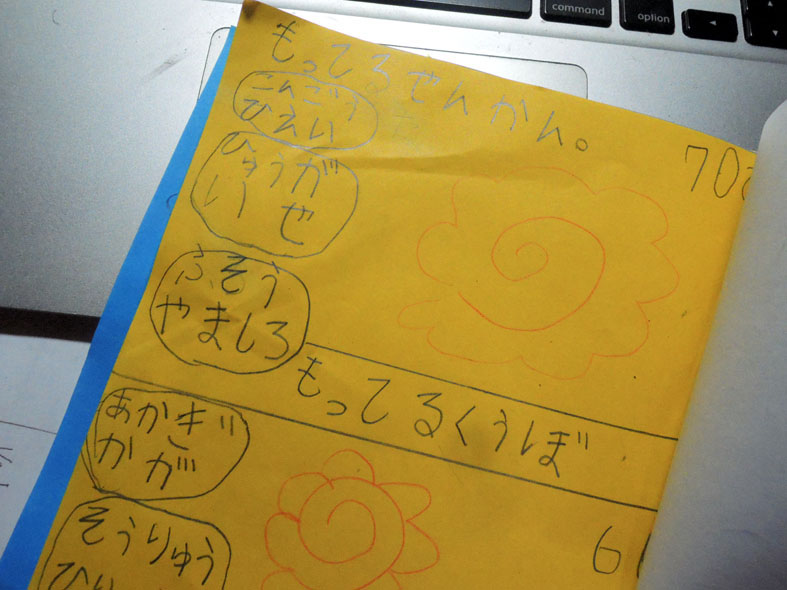 command
option
もってるせんかん。
こんごう
ひえい
ひゅうが
いせ
ふそう
やましろ
もってるくうぼ
あかぎ
かが
そうりゅう